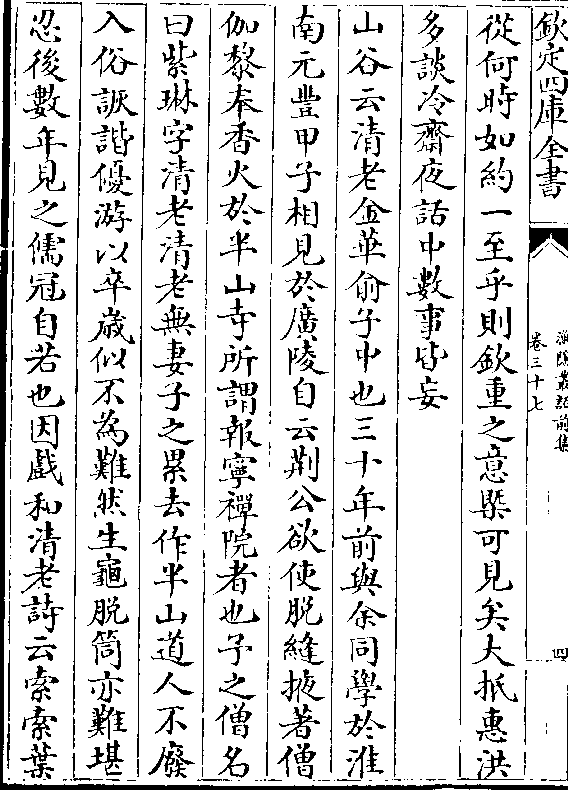 欽定四庫全書
漁隱叢話前集
卷三十七
四
從何時如約一至乎則欽重之意槩可見矣大抵惠洪
多談冷齋夜話中數事皆妄
山谷云清老金華俞子中也三十年前與余同學於淮
南元豐甲子相見於廣陵自云荆公欲使脱縫掖著僧
伽黎奉香火於半山寺所謂報寧禪院者也予之僧名
曰紫琳字清老清老無妻子之累去作半山道人不廢
入俗詼諧優游以卒歲似不為難然生龜脱筒亦難堪
忍後數年見之儒冠自若也因戲和清老詩云索索葉